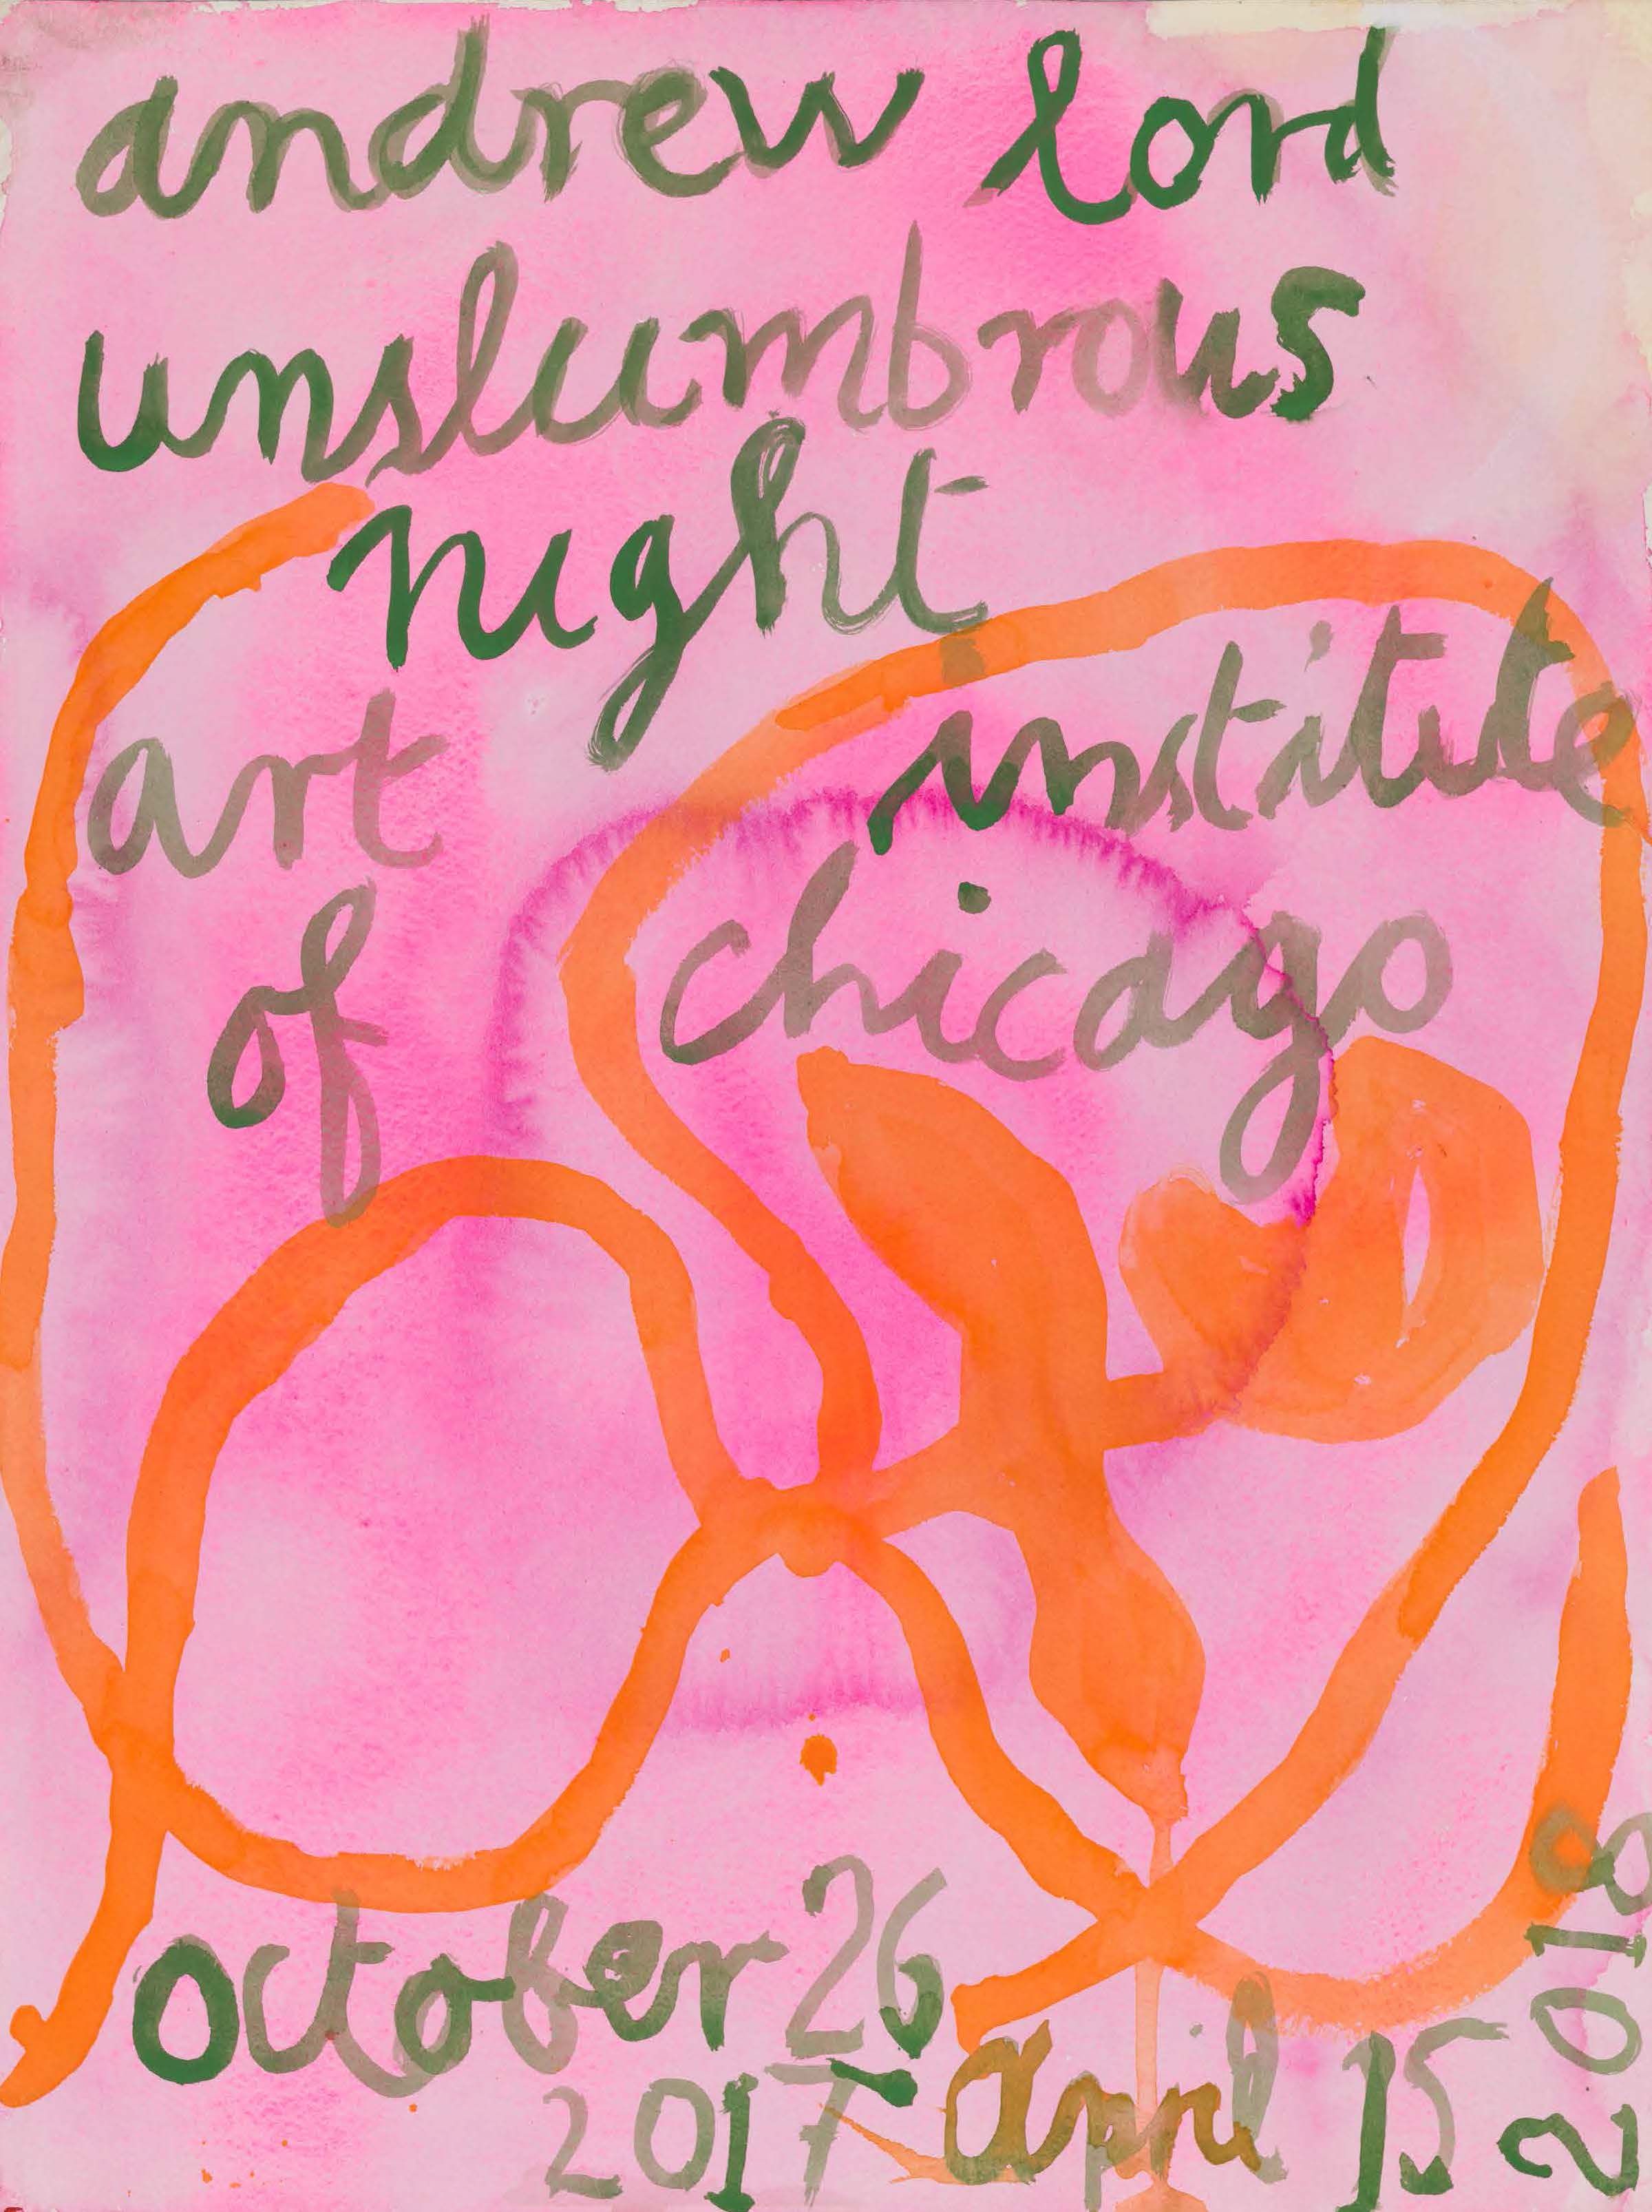 andrew lord
unslumbrous
night
art institute
of chicago
october 26
2017 - april 15 2018